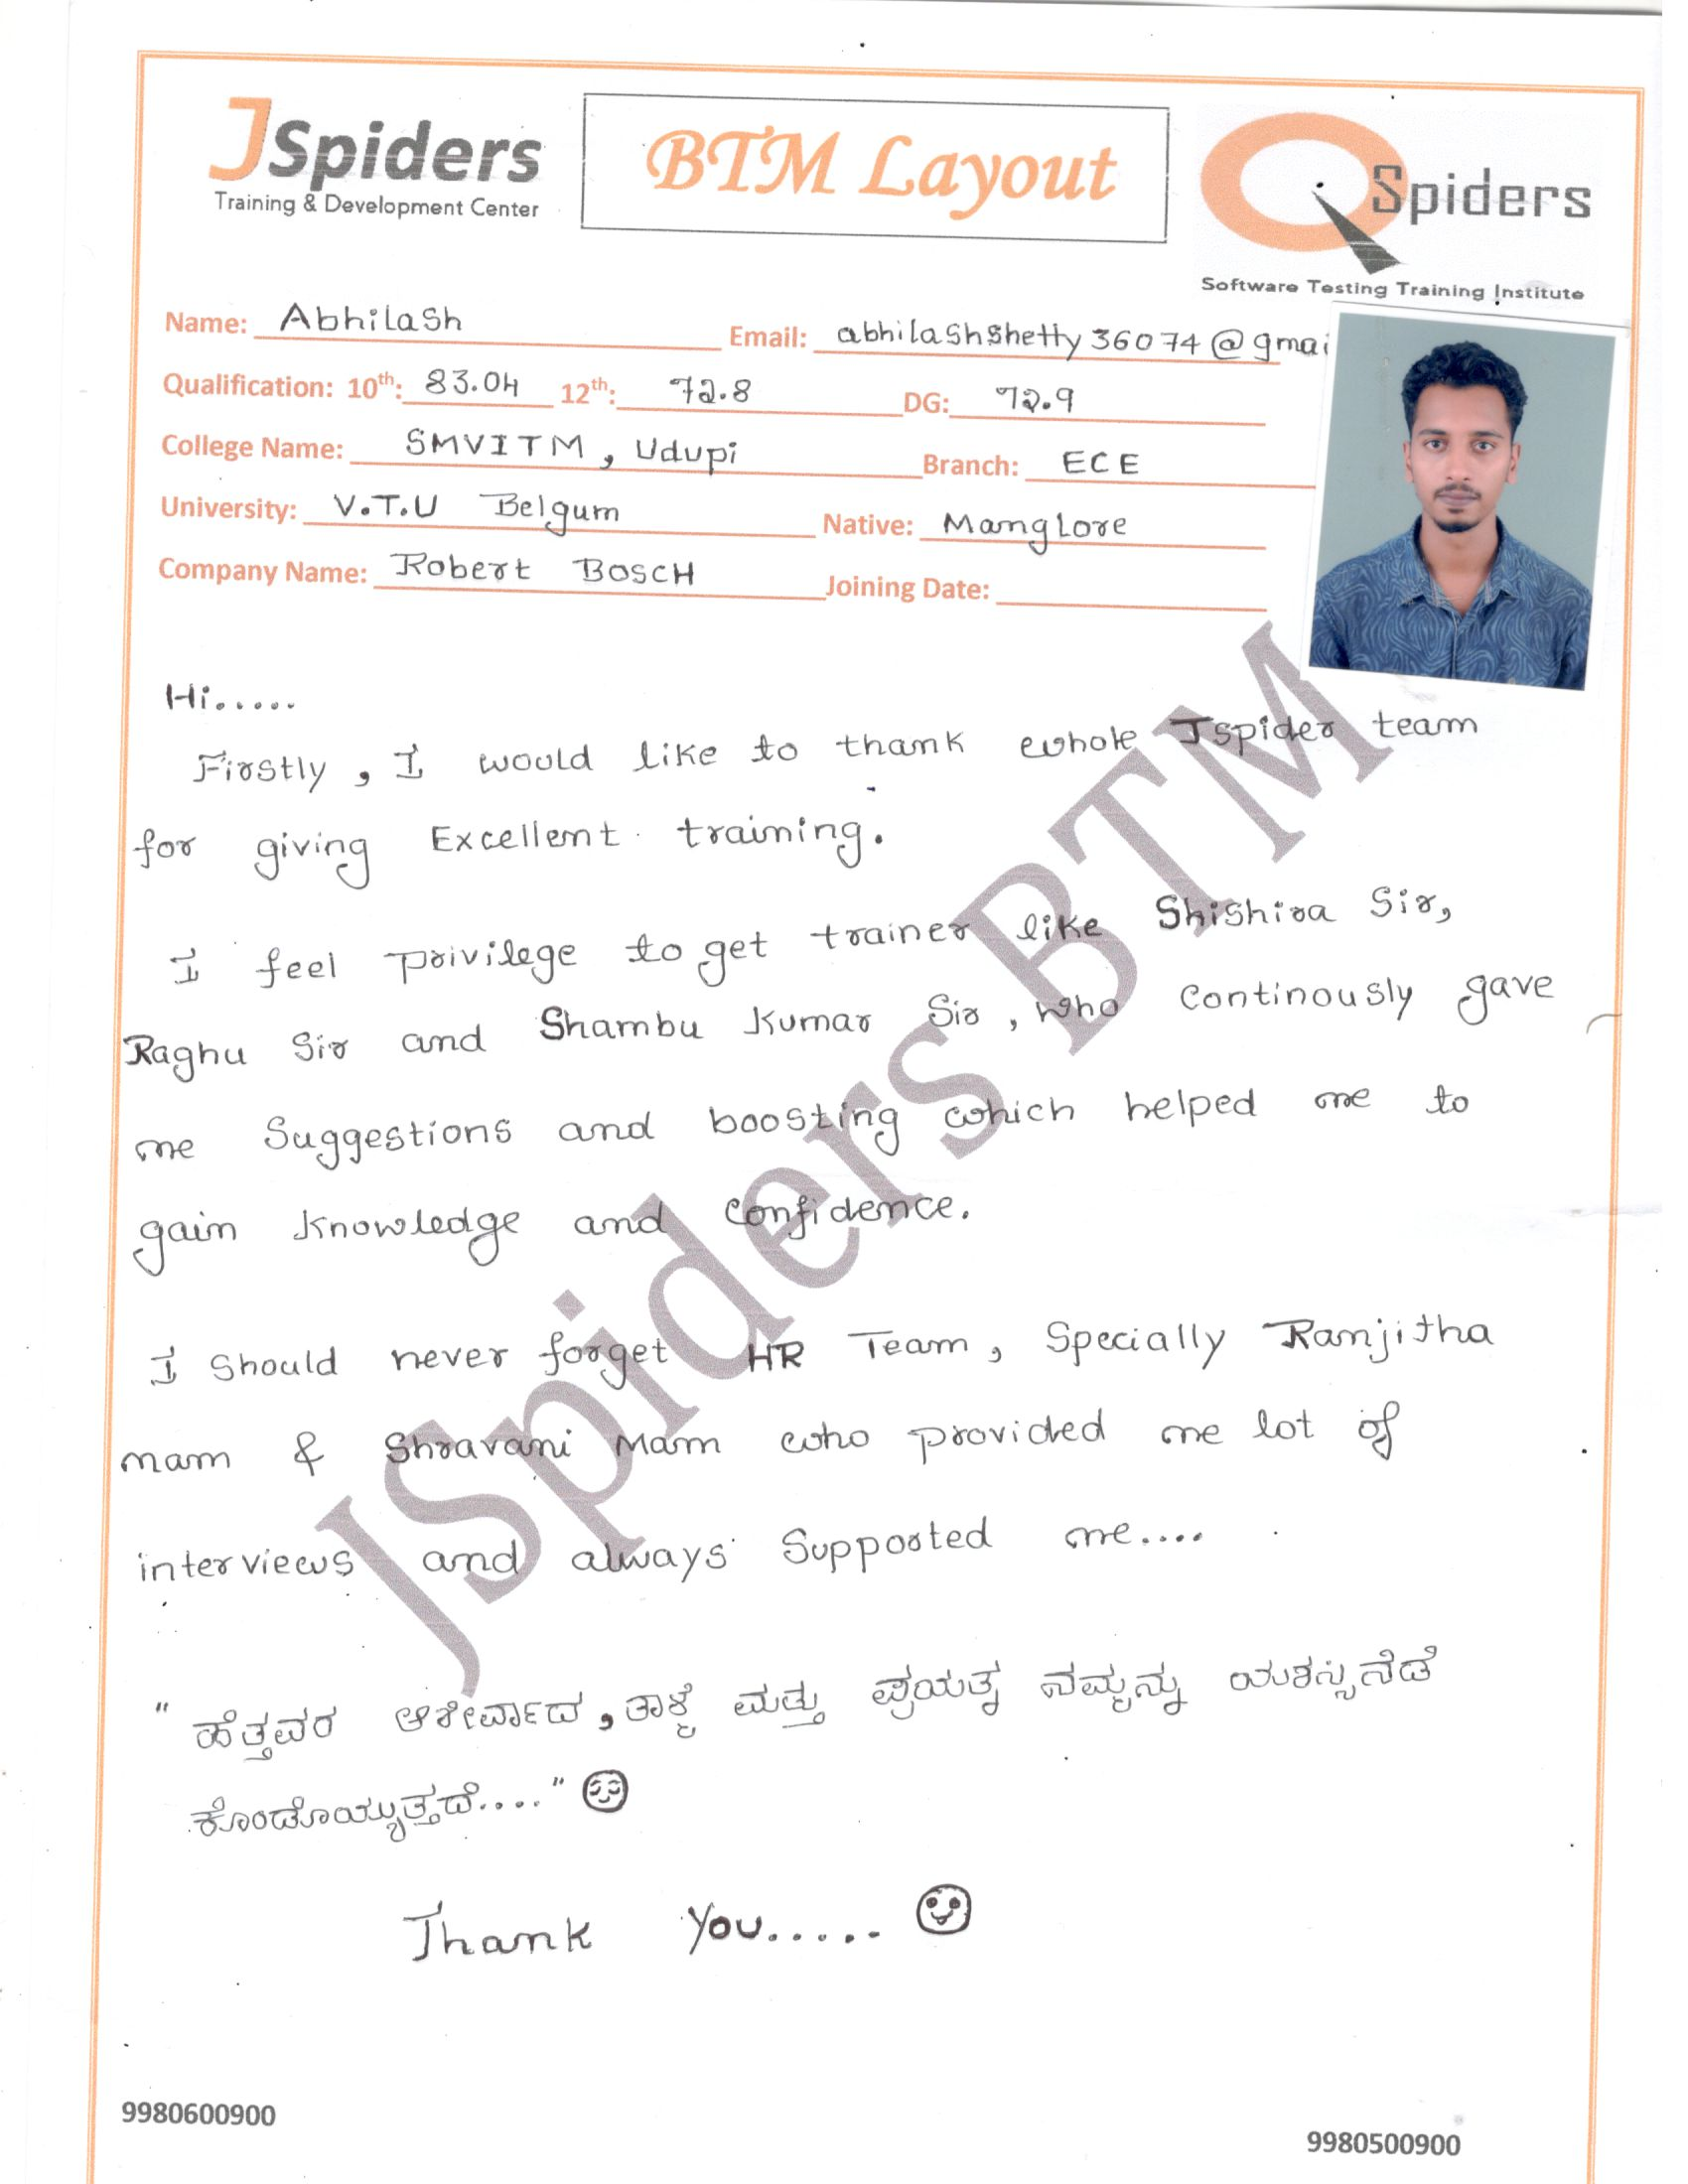 JSpiders
Training & Development Center
BTM Layout
QSpiders
Software Testing Training Institute
Name: Abhilash Email: abhilashshetty36074@gmai
Qualification: 10th: 83.04 12th: 72.8 DG: 72.9
College Name: SMVITM, Udupi Branch: ECE
University: V.T.U Belgum Native: Manglore
Company Name: Robert BOSCH Joining Date:
Hi.....
Firstly, I would like to thank whole Jspider team
for giving Excellent training.
I feel privilege to get trainer like Shishira Sir,
Raghu Sir and Shambu Kumar Sir, who continously gave
me Suggestions and boosting which helped me to
gain knowledge and confidence.
I should never forget HR Team, Specially Ranjitha
mam & Shravani Mam who provided me lot of
interviews and always Supported me....
"ಹೆತ್ತವರ ಆಶೀರ್ವಾದ, ತಾಳ್ಮೆ ಮತ್ತು ಪ್ರಯತ್ನ ನಮ್ಮನ್ನು ಯಶಸ್ಸಿನೆಡೆ
ಕೊಂಡೊಯ್ಯುತ್ತದೆ...."
Thank You.....
JSpiders BTM
9980600900
9980500900